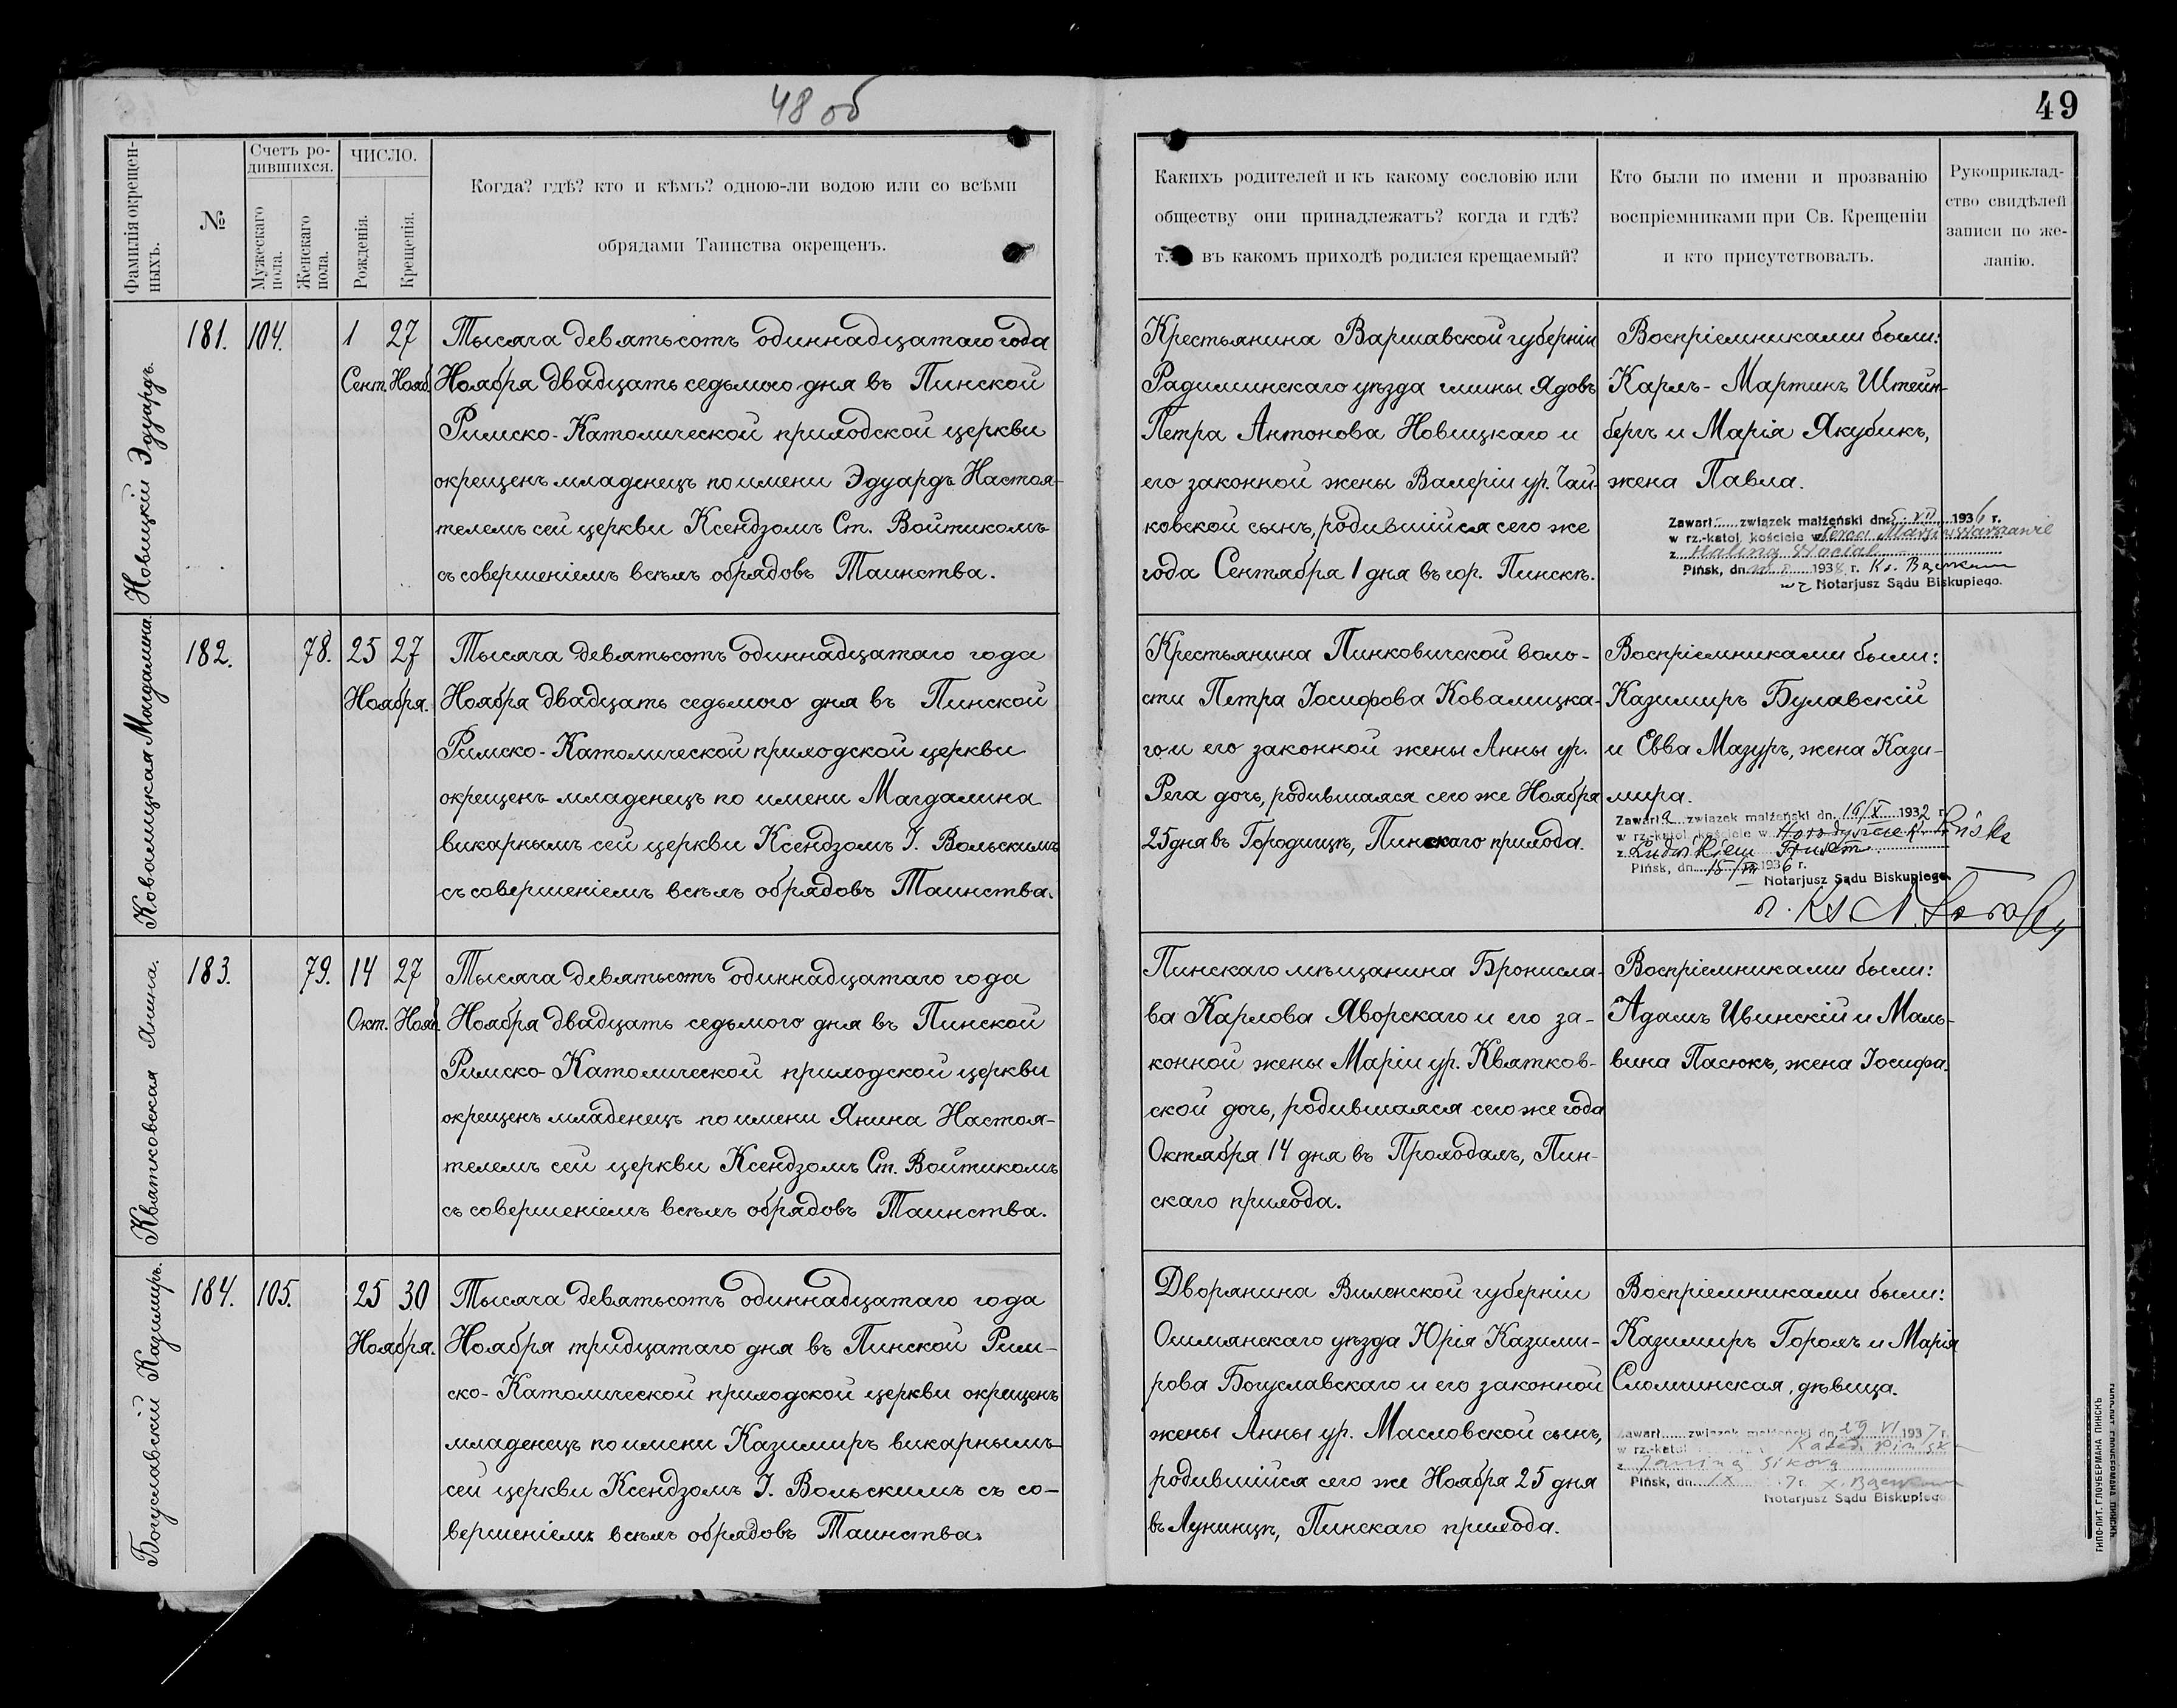 48 об
49
Фамилія окрещен-
ныхъ.
№
Счетъ ро-
дившихся.
Мужескаго
пола.
Женскаго
пола.
ЧИСЛО.
Рожденія.
Крещенія.
Когда? гдѣ? кто и кѣмъ? одною-ли водою или со всѣми
обрядами Таинства окрещенъ.
Какихъ родителей и къ какому сословію или
обществу они принадлежатъ? когда и гдѣ?
т. въ какомъ приходѣ родился крещаемый?
Кто были по имени и прозванію
воспріемниками при Св. Крещеніи
и кто присутствовалъ.
Рукоприклад-
ство свидѣлей
записи по же-
ланію.
Новицкій Эдуардъ.
181. 104. 1 27
Сент. Нояб.
Тысяча девятьсотъ одиннадцатаго года
Ноября двадцать седьмого дня въ Пинской
Римско-Католической приходской церкви
окрещенъ младенецъ по имени Эдуардъ Настоя-
телемъ сей церкви Ксендзомъ Ст. Войтикомъ
съ совершеніемъ всѣхъ обрядовъ Таинства.
Крестьянина Варшавской губерніи
Радиминскаго уѣзда гмины Ядовъ
Петра Антонова Новицкаго и
его законной жены Валеріи ур. Чай-
ковской сынъ, родившійся сего же
года Сентября 1 дня въ гор. Пинскѣ.
Воспріемниками были:
Карлъ-Мартинъ Штейн-
бергъ и Марія Якубикъ,
жена Павла.
Zawarł związek małżeński dn. 5. VII 1936 r.
w rz.-katol. kościele w Warszawie
z Haliną
Pińsk, dn. 1938 r. Ks.
wz Notarjusz Sądu Biskupiego.
Ковалицкая Магдалина.
182. 78. 25 27
Ноября.
Тысяча девятьсотъ одиннадцатаго года
Ноября двадцать седьмого дня въ Пинской
Римско-Католической приходской церкви
окрещенъ младенецъ по имени Магдалина
викарнымъ сей церкви Ксендзомъ І. Вольскимъ
съ совершеніемъ всѣхъ обрядовъ Таинства.
Крестьянина Пинковичской воло-
сти Петра Іосифова Ковалицка-
го и его законной жены Анны ур.
Рега дочь, родившаяся сего же Ноября
25 дня въ Городищѣ, Пинскаго прихода.
Воспріемниками были:
Казимиръ Булавскій
и Евва Мазуръ, жена Кази-
мира.
Zawarła związek małżeński dn. 16/X 1932 r.
w rz.-katol. kościele w
z Ludwikiem
Pińsk, dn. 15/VII 1936 r.
Notarjusz Sądu Biskupiego.
Квятковская Янина.
183. 79. 14 27
Окт. Нояб.
Тысяча девятьсотъ одиннадцатаго года
Ноября двадцать седьмого дня въ Пинской
Римско-Католической приходской церкви
окрещенъ младенецъ по имени Янина Настоя-
телемъ сей церкви Ксендзомъ Ст. Войтикомъ
съ совершеніемъ всѣхъ обрядовъ Таинства.
Пинскаго мѣщанина Бронисла-
ва Карлова Яворскаго и его за-
конной жены Маріи ур. Квятков-
ской дочь, родившаяся сего же года
Октября 14 дня въ Проходахъ, Пин-
скаго прихода.
Воспріемниками были:
Адамъ Цвинскій и Маль-
вина Пасюкъ, жена Іосифа.
Богуславскій Казимиръ.
184. 105. 25 30
Ноября.
Тысяча девятьсотъ одиннадцатаго года
Ноября тридцатаго дня въ Пинской Рим-
ско-Католической приходской церкви окрещенъ
младенецъ по имени Казимиръ викарнымъ
сей церкви Ксендзомъ І. Вольскимъ съ со-
вершеніемъ всѣхъ обрядовъ Таинства.
Дворянина Виленской губерніи
Ошмянскаго уѣзда Юрія Казими-
рова Богуславскаго и его законной
жены Анны ур. Масловской сынъ,
родившійся сего же Ноября 25 дня
въ Лунинцѣ, Пинскаго прихода.
Воспріемниками были:
Казимиръ Горохъ и Марія
Сломчинская, дѣвица.
Zawarł związek małżeński dn. 29 VI 1937 r.
w rz.-katol.
z Janiną Sikorą
Pińsk, dn. IX
Notarjusz Sądu Biskupiego.
ТИПО-ЛИТ. ГЛОУБЕРМАНА ПИНСКЪ